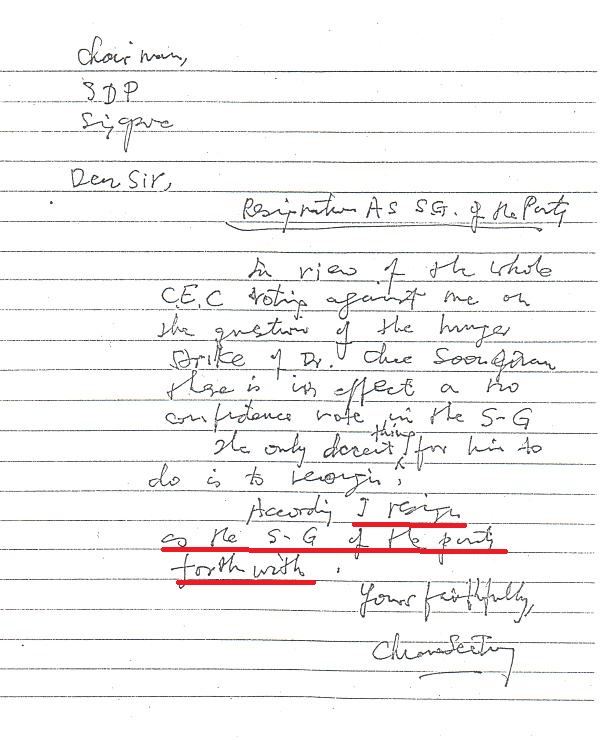 Chairman,
SDP
Singapore
Dear Sir,
Resignation As SG. of the Party
In view of the whole
C.E.C voting against me on
the question of the hunger
strike of Dr. Chee Soon Juan
there is in effect a no
confidence vote in the S-G
The only decent thing for him to
do is to resign.
According I resign
as the S-G of the party
forthwith.
Yours faithfully,